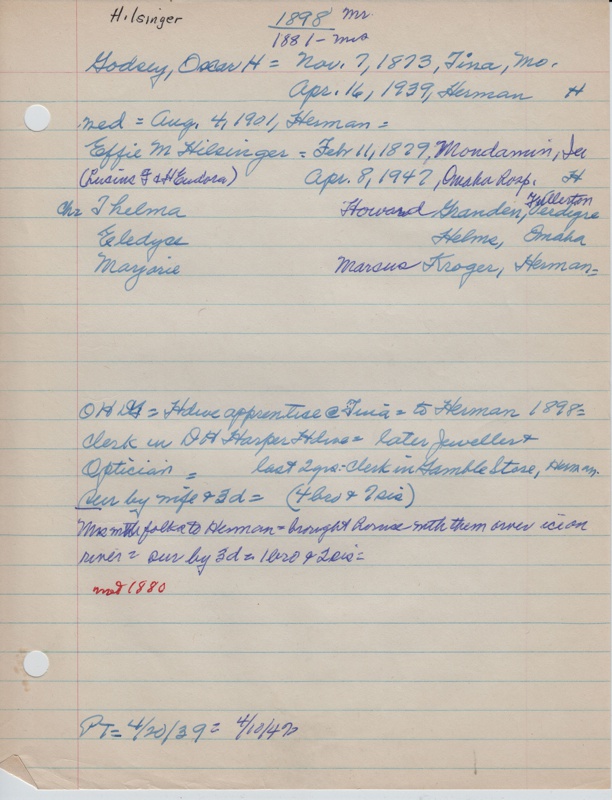 Hilsinger
1898 Mr
1881 - Mrs
Godsey, Oscar H = Nov. 7, 1873, Tina, Mo.
Apr. 16, 1939, Herman H
med = Aug. 4, 1901, Herman =
Effie M Hilsinger = Feb 11, 1879, Mondamin, Ia
(Lucius F & H Eudora) Apr. 8, 1947, Omaha Hosp. H
Fullerton
Chr Thelma Howard Granden, Verdigre
Eledyse Helms, Omaha
Marjorie Marsus Kroger, Herman =
OHDG = Hdwe apprentise @ Tina = to Herman 1898 =
Clerk in DH Harper Hdwe = later Jeweller &
Optician = last 2 yrs = Clerk in Gamble Store, Herman.
Sur by wife & 3d = (4 bro & 2 sis)
Mrs with folks to Herman = brought house with them over ice on
river = sur by 3d = 1 bro & 2 sis =
med 1880
PT = 4/20/39 = 4/10/47